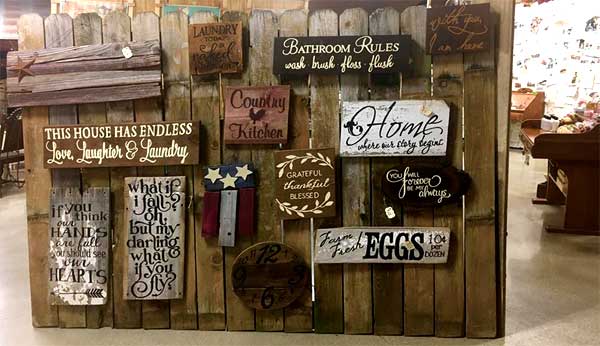 LAUNDRY
TODAY
OR
naked
Bathroom Rules
wash · brush · floss · flush
With you
I am home
Country
Kitchen
Home
where our story begins
THIS HOUSE HAS ENDLESS
Love, Laughter & Laundry
GRATEFUL
thankful
BLESSED
You will
forever
be my
always.
if you
think
our
HANDS
are full
you should
see
our
HEARTS
what if
i fall?
oh,
but my
darling
what
if you
fly?
Farm
Fresh
EGGS
10¢
per
DOZEN
12
9
3
6